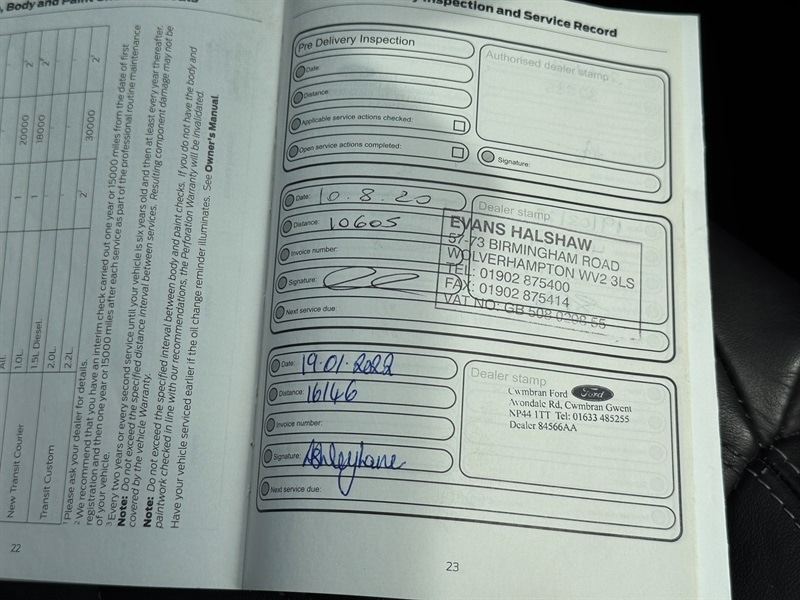 , Body and Paint
New Transit Courier
Transit Custom
All
1.0L
1.5L Diesel
2.0L
2.2L
1
1
20000
18000
2¹
30000
2¹
2¹
2¹
¹ Please ask your dealer for details.
² We recommend that you have an interim check carried out one year or 15000 miles from the date of first
registration and then one year or 15000 miles after each service as part of the professional routine maintenance
of your vehicle.
³ Every two years or every second service until your vehicle is six years old and then at least every year thereafter.
Note: Do not exceed the specified distance interval between services. Resulting component damage may not be
covered by the vehicle Warranty.
Note: Do not exceed the specified interval between body and paint checks. If you do not have the body and
paintwork checked in line with our recommendations, the Perforation Warranty will be invalidated.
Have your vehicle serviced earlier if the oil change reminder illuminates. See Owner's Manual.
22
Inspection and Service Record
Pre Delivery Inspection
Date:
Distance:
Applicable service actions checked:
Open service actions completed:
Authorised dealer stamp
Signature:
Date: 10.8.20
Distance: 10605
Invoice number:
Signature:
Next service due:
Dealer stamp
EVANS HALSHAW
57-73 BIRMINGHAM ROAD
WOLVERHAMPTON WV2 3LS
TEL: 01902 875400
FAX: 01902 875414
VAT NO: GB 508 0298 55
Date: 19.01.2022
Distance: 16146
Invoice number:
Signature:
Next service due:
Dealer stamp
Cwmbran Ford Ford
Avondale Rd, Cwmbran Gwent
NP44 1TT Tel: 01633 485255
Dealer 84566AA
23